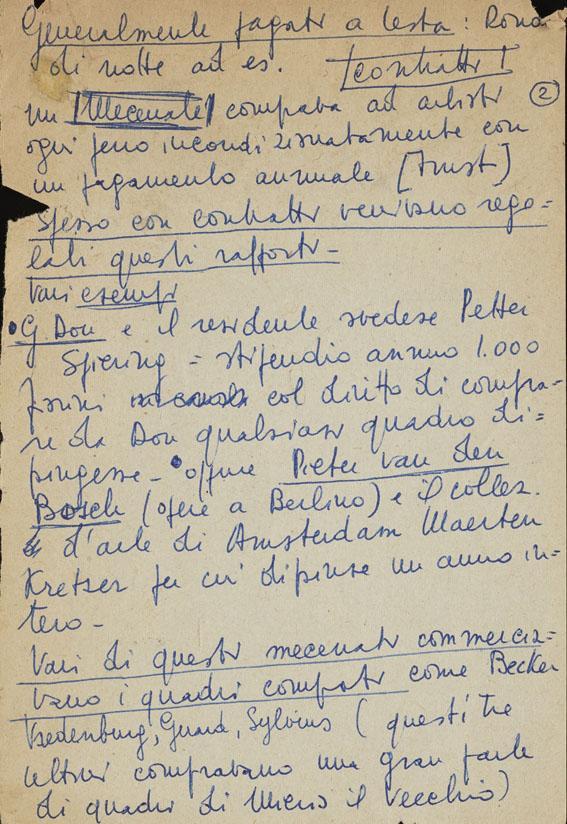 Generalmente pagati a testa: Ronda
di notte ad es. contratti!
2
un Mecenate comprava ad artisti
ogni anno incondizionatamente con
un pagamento annuale [Amst]
Spesso con contratti venivano rego=
lati questi rapporti -
Vari esempi
• G. Dou e il residente svedese Petter
Spiering = stipendio annuo 1.000
fiorini col diritto di compra-
re da Dou qualsiasi quadro di=
pingesse - • oppure Pieter van den
Bosch (opere a Berlino) e il collez.
d'arte di Amsterdam Maerten
Kretzer per cui dipinse un anno in=
tero -
Vari di questi mecenati commercia=
vano i quadri comprati come Becker
Vredenburg, Sylvius (questi tre
ultimi compravano una gran parte
di quadri di Mieris il Vecchio)